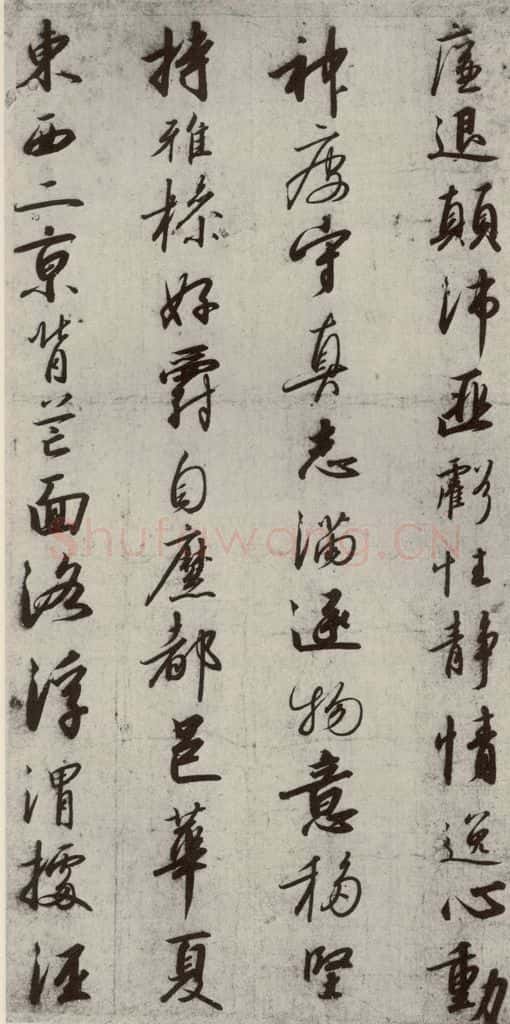 廉退顛沛匪虧性靜情逸心動
神疲守真志滿逐物意移堅
持雅操好爵自縻都邑華夏
東西二京背芒面洛浮渭據涇
Shufawang.CN